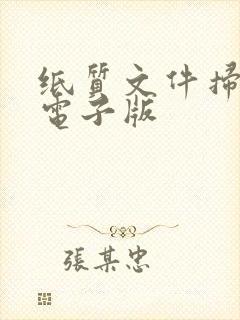 纸質文件掃
電子版
張某忠